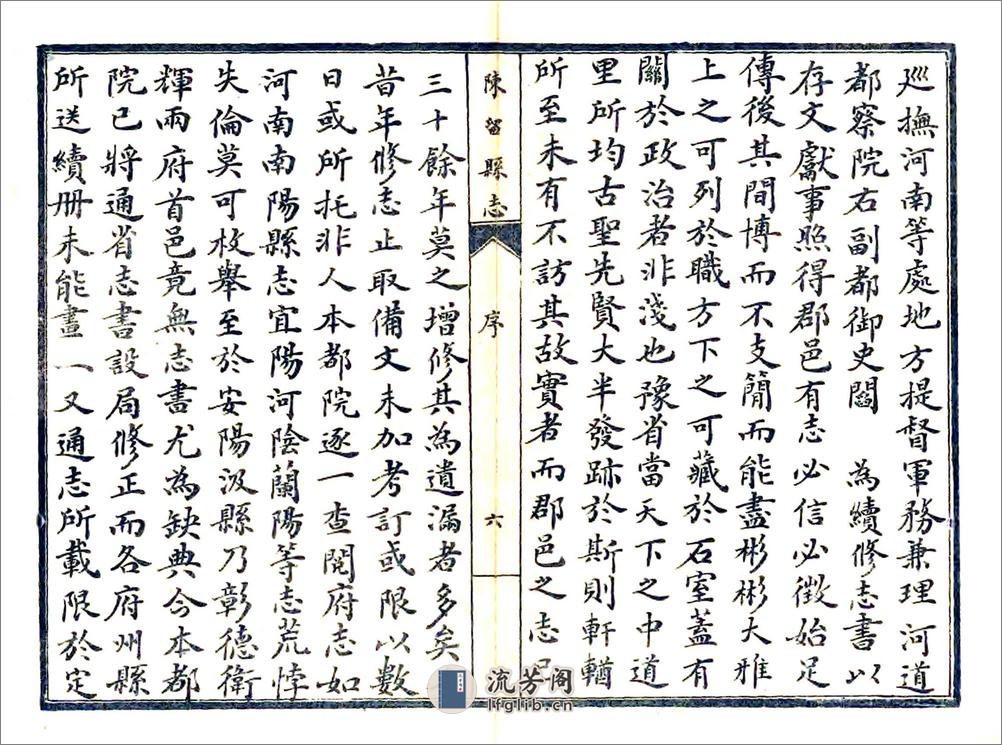 廵撫河南等處地方提督軍務兼理河道
都察院右副都御史閻　為續修志書以
存文獻事照得郡邑有志必信必徵始足
傳後其間博而不支簡而能盡彬彬大雅
上之可列於職方下之可藏於石室蓋有
關於政治者非淺也豫省當天下之中道
里所均古聖先賢大半發跡於斯則軒輶
所至未有不訪其故實者而郡邑之志
陳留縣志
序
六
三十餘年莫之增修其為遺漏者多矣
昔年修志止取備文未加考訂或限以數
日或所托非人本都院逐一查閱府志如
河南南陽縣志宜陽河陰蘭陽等志荒悖
失倫莫可枚舉至於安陽汲縣乃彰德衛
輝兩府首邑竟無志書尤為缺典今本都
院已將通省志書設局修正而各府州縣
所送續册未能畫一又通志所載限於定
流芳阁
lfglib.cn